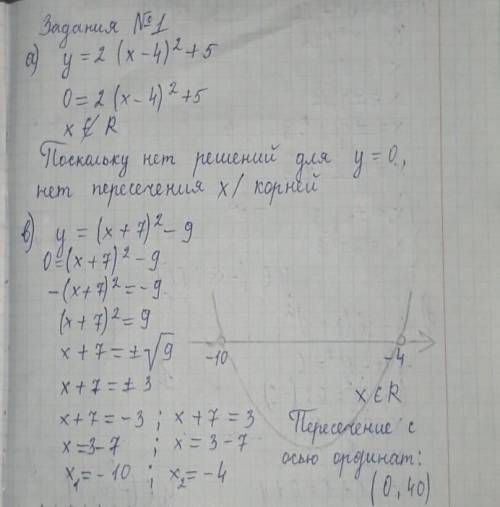 Задания №1
а) y = 2 (x – 4)² + 5
0 = 2 (x – 4)² + 5
x ∉ R
Поскольку нет решений для y = 0,
нет пересечения x / корней
в) y = (x + 7)² – 9
0 = (x + 7)² – 9
–(x + 7)² = –9
(x + 7)² = 9
x + 7 = ±√9
x + 7 = ± 3
x + 7 = –3 ; x + 7 = 3
x = 3 – 7 ; x = 3 – 7
x₁ = –10 ; x₂ = –4
–10
–4
x ∈ R
Пересечение с
осью ординат:
(0, 40)